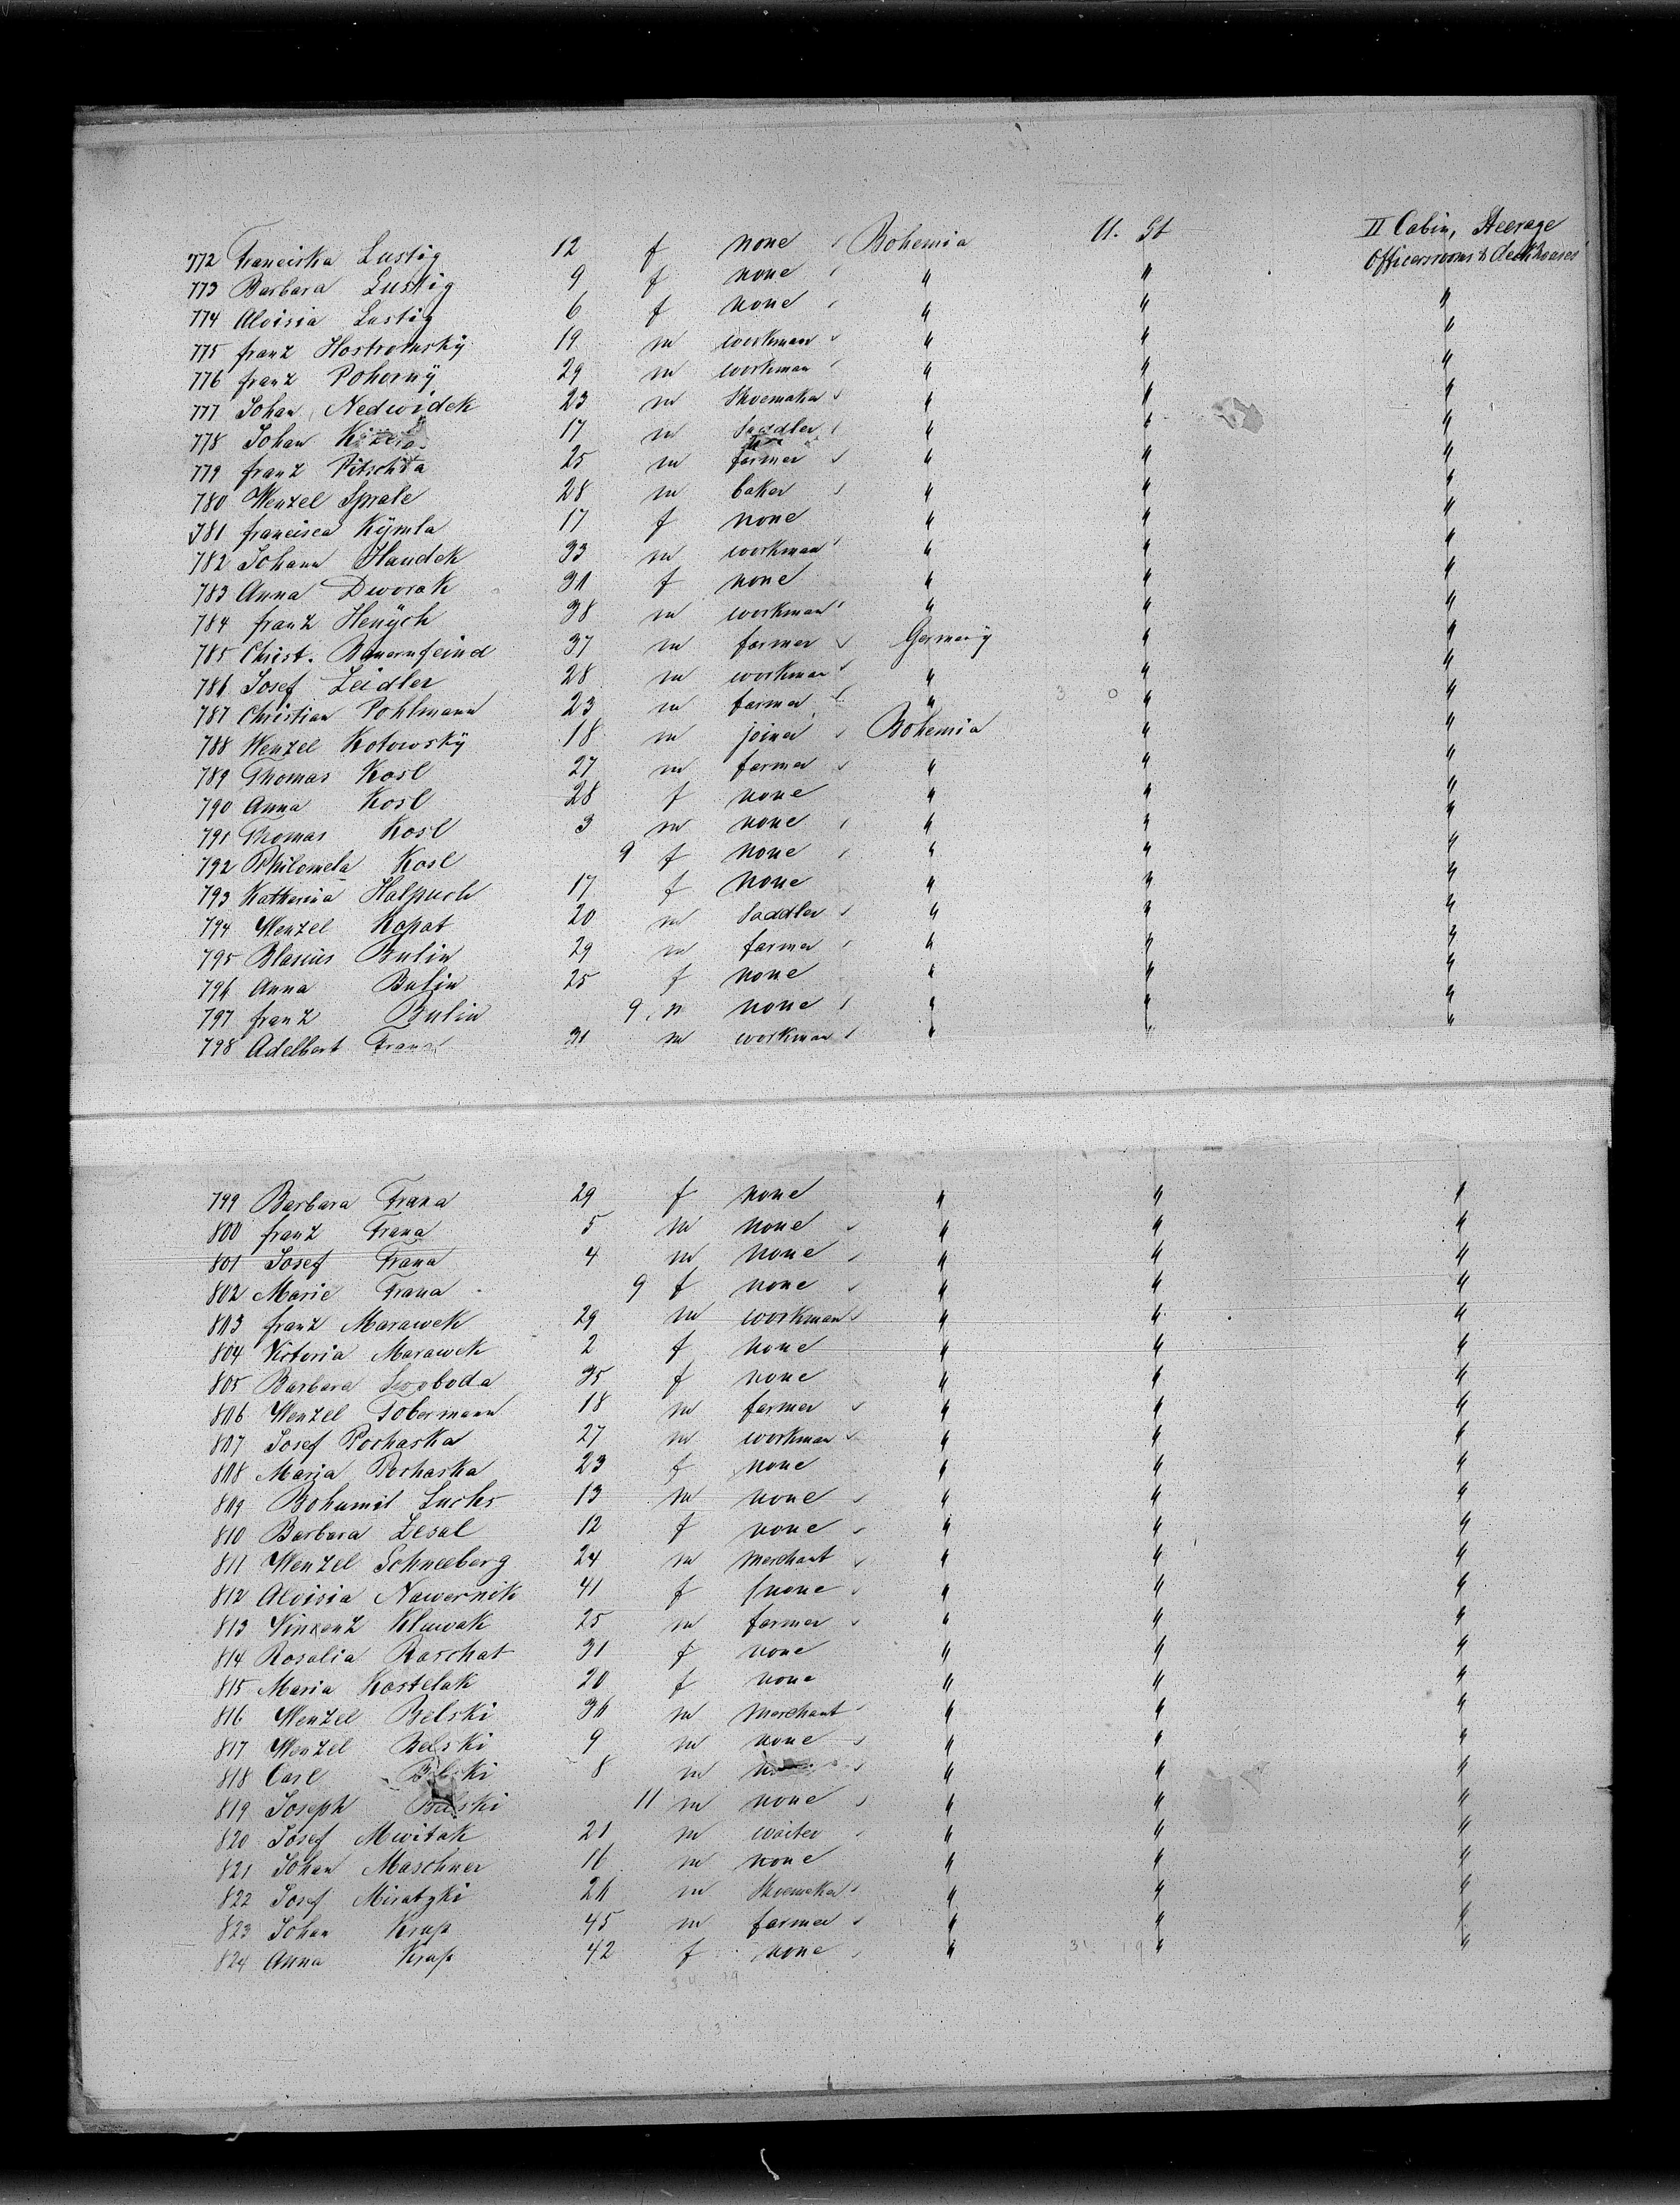 II Cabin, Steerage
772 Franciska Lustig 12 f none Bohemia U. St Officersrooms & deckhouses
773 Barbara Lustig 9 f none " " "
774 Aloisia Lustig 6 f none " " "
775 franz Hostromsky 19 m workman " " "
776 franz Pohorny 29 m workman " " "
777 Johan Nedwidek 23 m Shoemaker " " "
778 Johan 17 m Saddler " " "
779 franz Pitschta 25 m farmer " " "
780 Wenzel Sprale 28 m baker " " "
781 francisca Kymla 17 f none " " "
782 Johann Haudek 33 m workman " " "
783 Anna Dworak 31 f none " " "
784 franz Henych 38 m workman " " "
785 Christ. Bauernfeind 37 m farmer Germany " "
786 Josef Zeidler 28 m workman " " "
787 Christian Pohlmann 23 m farmer " " "
788 Wenzel Kotowsky 18 m joiner Bohemia " "
789 Thomas Kosl 27 m farmer " " "
790 Anna Kosl 28 f none " " "
791 Thomas Kosl 3 m none " " "
792 Philomela Kosl 9 f none " " "
793 Katherina Halpuch 17 f none " " "
794 Wenzel Kopat 20 m Saddler " " "
795 Blasius Bulin 29 m farmer " " "
796 Anna Bulin 25 f none " " "
797 franz Bulin 9 m none " " "
798 Adelbert Frana 31 m workman " " "
799 Barbara Frana 29 f none " " "
800 franz Frana 5 m none " " "
801 Josef Frana 4 m none " " "
802 Marie Frana 9 f none " " "
803 franz Marawek 29 m workman " " "
804 Victoria Marawek 2 f none " " "
805 Barbara Swoboda 35 f none " " "
806 Wenzel Tobermann 18 m farmer " " "
807 Josef Pochaska 27 m workman " " "
808 Maria Pochaska 23 f none " " "
809 Bohumil Luchs 13 m none " " "
810 Barbara Zesal 12 f none " " "
811 Wenzel Schneeberg 24 m merchant " " "
812 Aloisia Nawernik 41 f none " " "
813 Vinzenz Kluwak 25 m farmer " " "
814 Rosalia Raschat 31 f none " " "
815 Maria Kostelak 20 f none " " "
816 Wenzel Belski m merchant " " "
817 Wenzel Belski 9 m none " " "
818 Carl Belski 8 m " " "
819 Joseph Belski 11 m none " " "
820 Josef Mwitak 21 m waiter " " "
821 Johan Maschner 16 m none " " "
822 Josef Miratzki m Shoemaker " " "
823 Johan Krap 45 m farmer " " "
824 Anna Krap 42 f none " " "